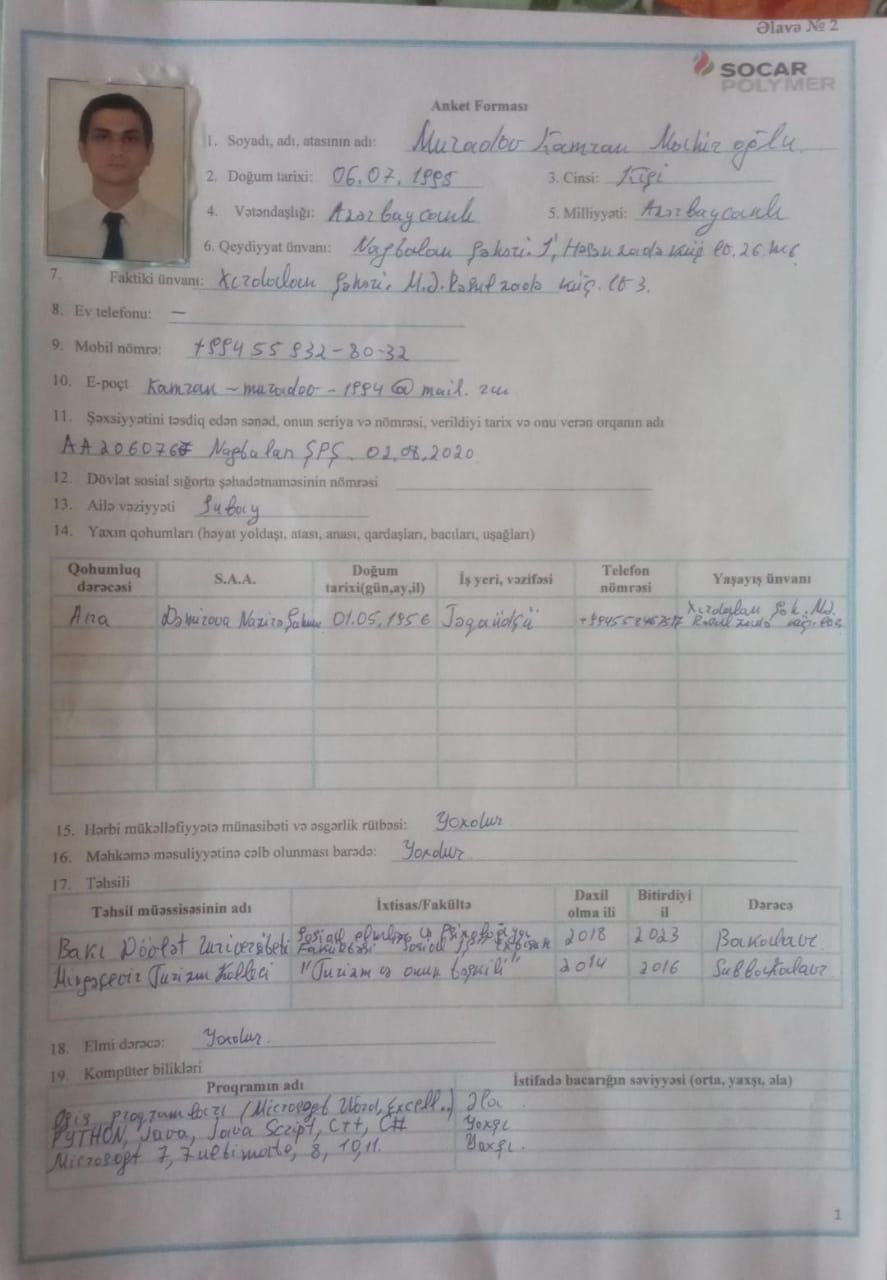 Əlavə № 2
SOCAR
POLYMER
Anket Forması
1. Soyadı, adı, atasının adı: Muradov Kamran Mochir oğlu
2. Doğum tarixi: 06.07.1995 3. Cinsi: Kişi
4. Vətəndaşlığı: Azərbaycanlı 5. Milliyyəti: Azərbaycanlı
6. Qeydiyyat ünvanı: Nagbalan Şəhəri. küç ev. 26 m6
7. Faktiki ünvanı: Xırdalan Şəhəri, M.Ə.Rəsulzadə küç. ev 3.
8. Ev telefonu: —
9. Mobil nömrə: +994 55 932-80-32
10. E-poçt Kamran-muradov-1994@mail.ru
11. Şəxsiyyətini təsdiq edən sənəd, onun seriya və nömrəsi, verildiyi tarix və onu verən orqanın adı
AA2060767 Nagbalan ŞPŞ. 02.08.2020
12. Dövlət sosial sığorta şəhadətnaməsinin nömrəsi
13. Ailə vəziyyəti Subay
14. Yaxın qohumları (həyat yoldaşı, atası, anası, qardaşları, bacıları, uşağları)
Qohumluq dərəcəsi S.A.A. Doğum tarixi(gün,ay,il) İş yeri, vəzifəsi Telefon nömrəsi Yaşayış ünvanı
Ana Dəmirova Nazirə 01.05.1956 Təqaüdçü Xırdalan şəh. M.Ə.
Rəsulzadə küç. ev3
15. Hərbi mükəlləfiyyətə münasibəti və əsgərlik rütbəsi: Yoxdur
16. Məhkəmə məsuliyyətinə cəlb olunması barədə: Yoxdur
17. Təhsili
Təhsil müəssisəsinin adı İxtisas/Fakültə Daxil olma ili Bitirdiyi il Dərəcə
Bakı Dövlət Universiteti Sosial elmlər və Psixologiya Fakültəsi Sosial 2018 2023 Bakalavr
Mingəçevir Turizm Kolleci "Turizm və onun təşkili" 2014 2016 Subbakalavr
18. Elmi dərəcə: Yoxdur.
19. Kompüter bilikləri
Proqramın adı İstifadə bacarığın səviyyəsi (orta, yaxşı, əla)
Ofis proqramları (Microsoft Word, Excell..) Əla
PYTHON, Java, Java Script, C++, C# Yaxşı
Microsoft 7, 7 ultimate, 8, 10, 11. Yaxşı.
1